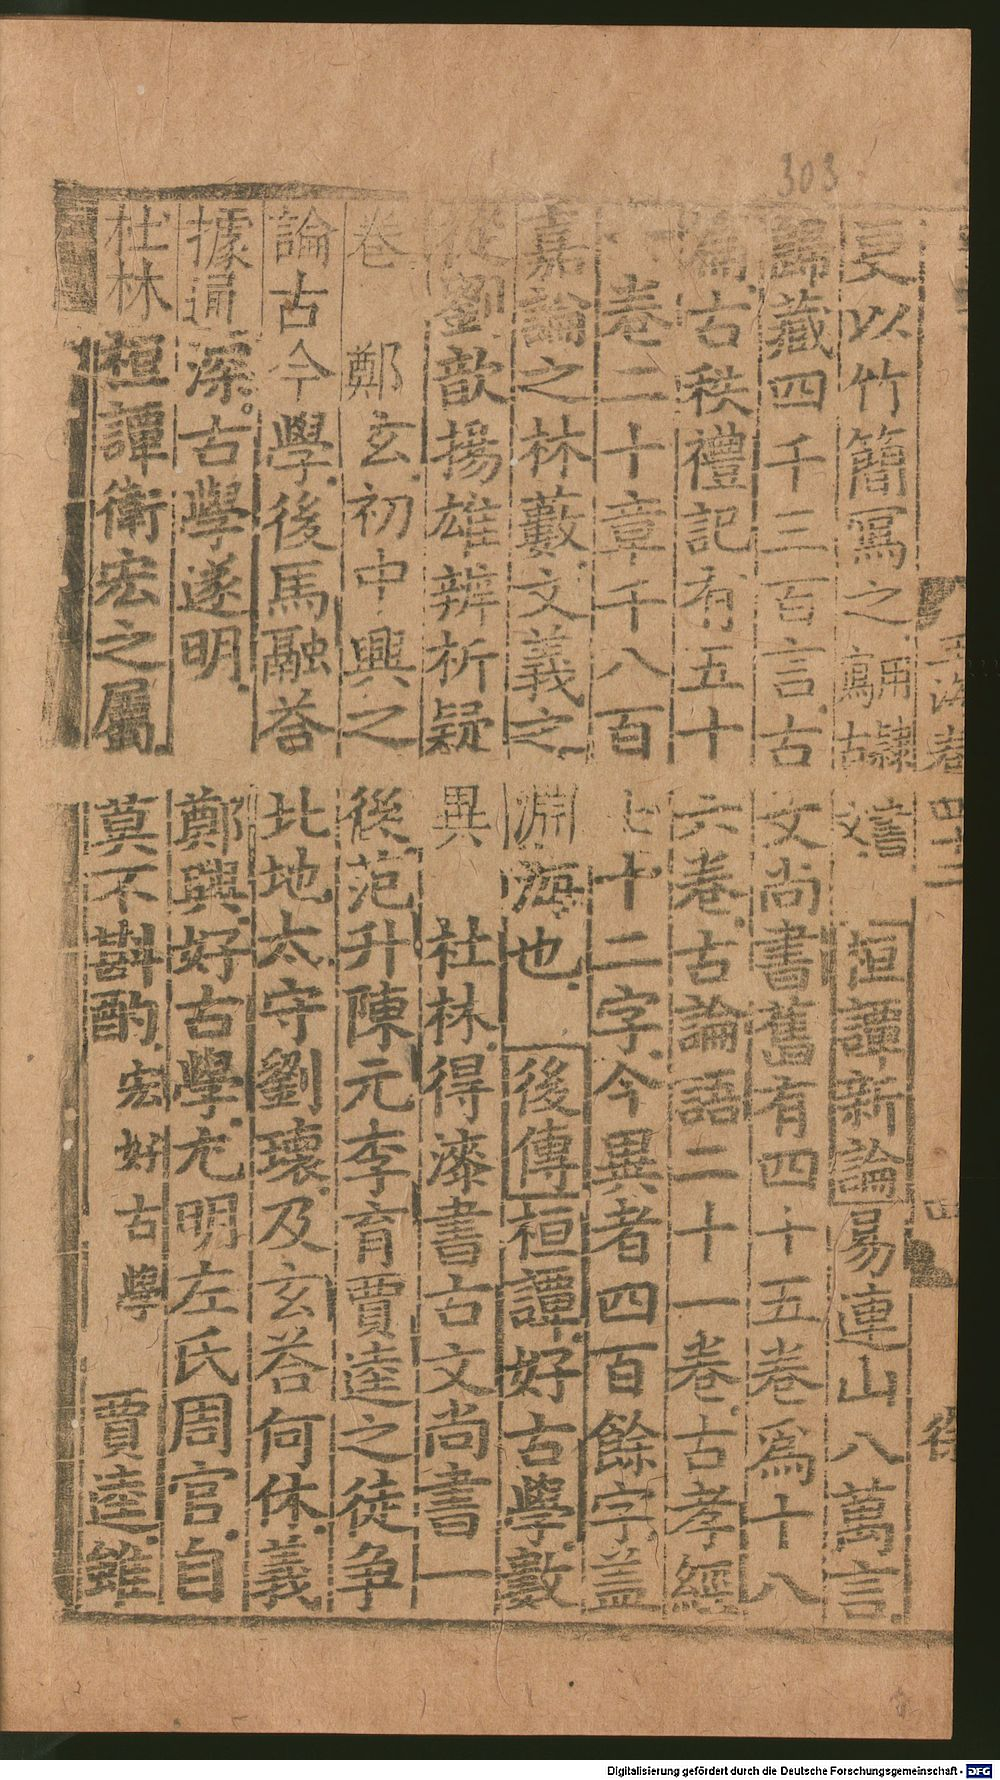 303
玉海卷 四十二
四
徐
更以竹簡寫之用隸寫古文言 桓譚新論易連山八萬言
歸藏四千三百言古文尚書舊有四十五卷爲十八
篇古秩禮記有五十六卷古論語二十一卷古孝經
一卷二十章千八百七十二字今異者四百餘字蓋
嘉論之林藪文義之淵海也 後傳桓譚好古學數
從劉歆揚雄辨析疑異 杜林得漆書古文尚書一
卷 鄭玄初中興之後范升陳元李育賈逵之徒爭
論古今學後馬融荅北地太守劉瓌及玄荅何休義
據通深古學遂明 鄭興好古學尤明左氏周官自
杜林桓譚衛宏之屬莫不斟酌宏好古學 賈逵雖
Digitalisierung gefördert durch die Deutsche Forschungsgemeinschaft - DFG